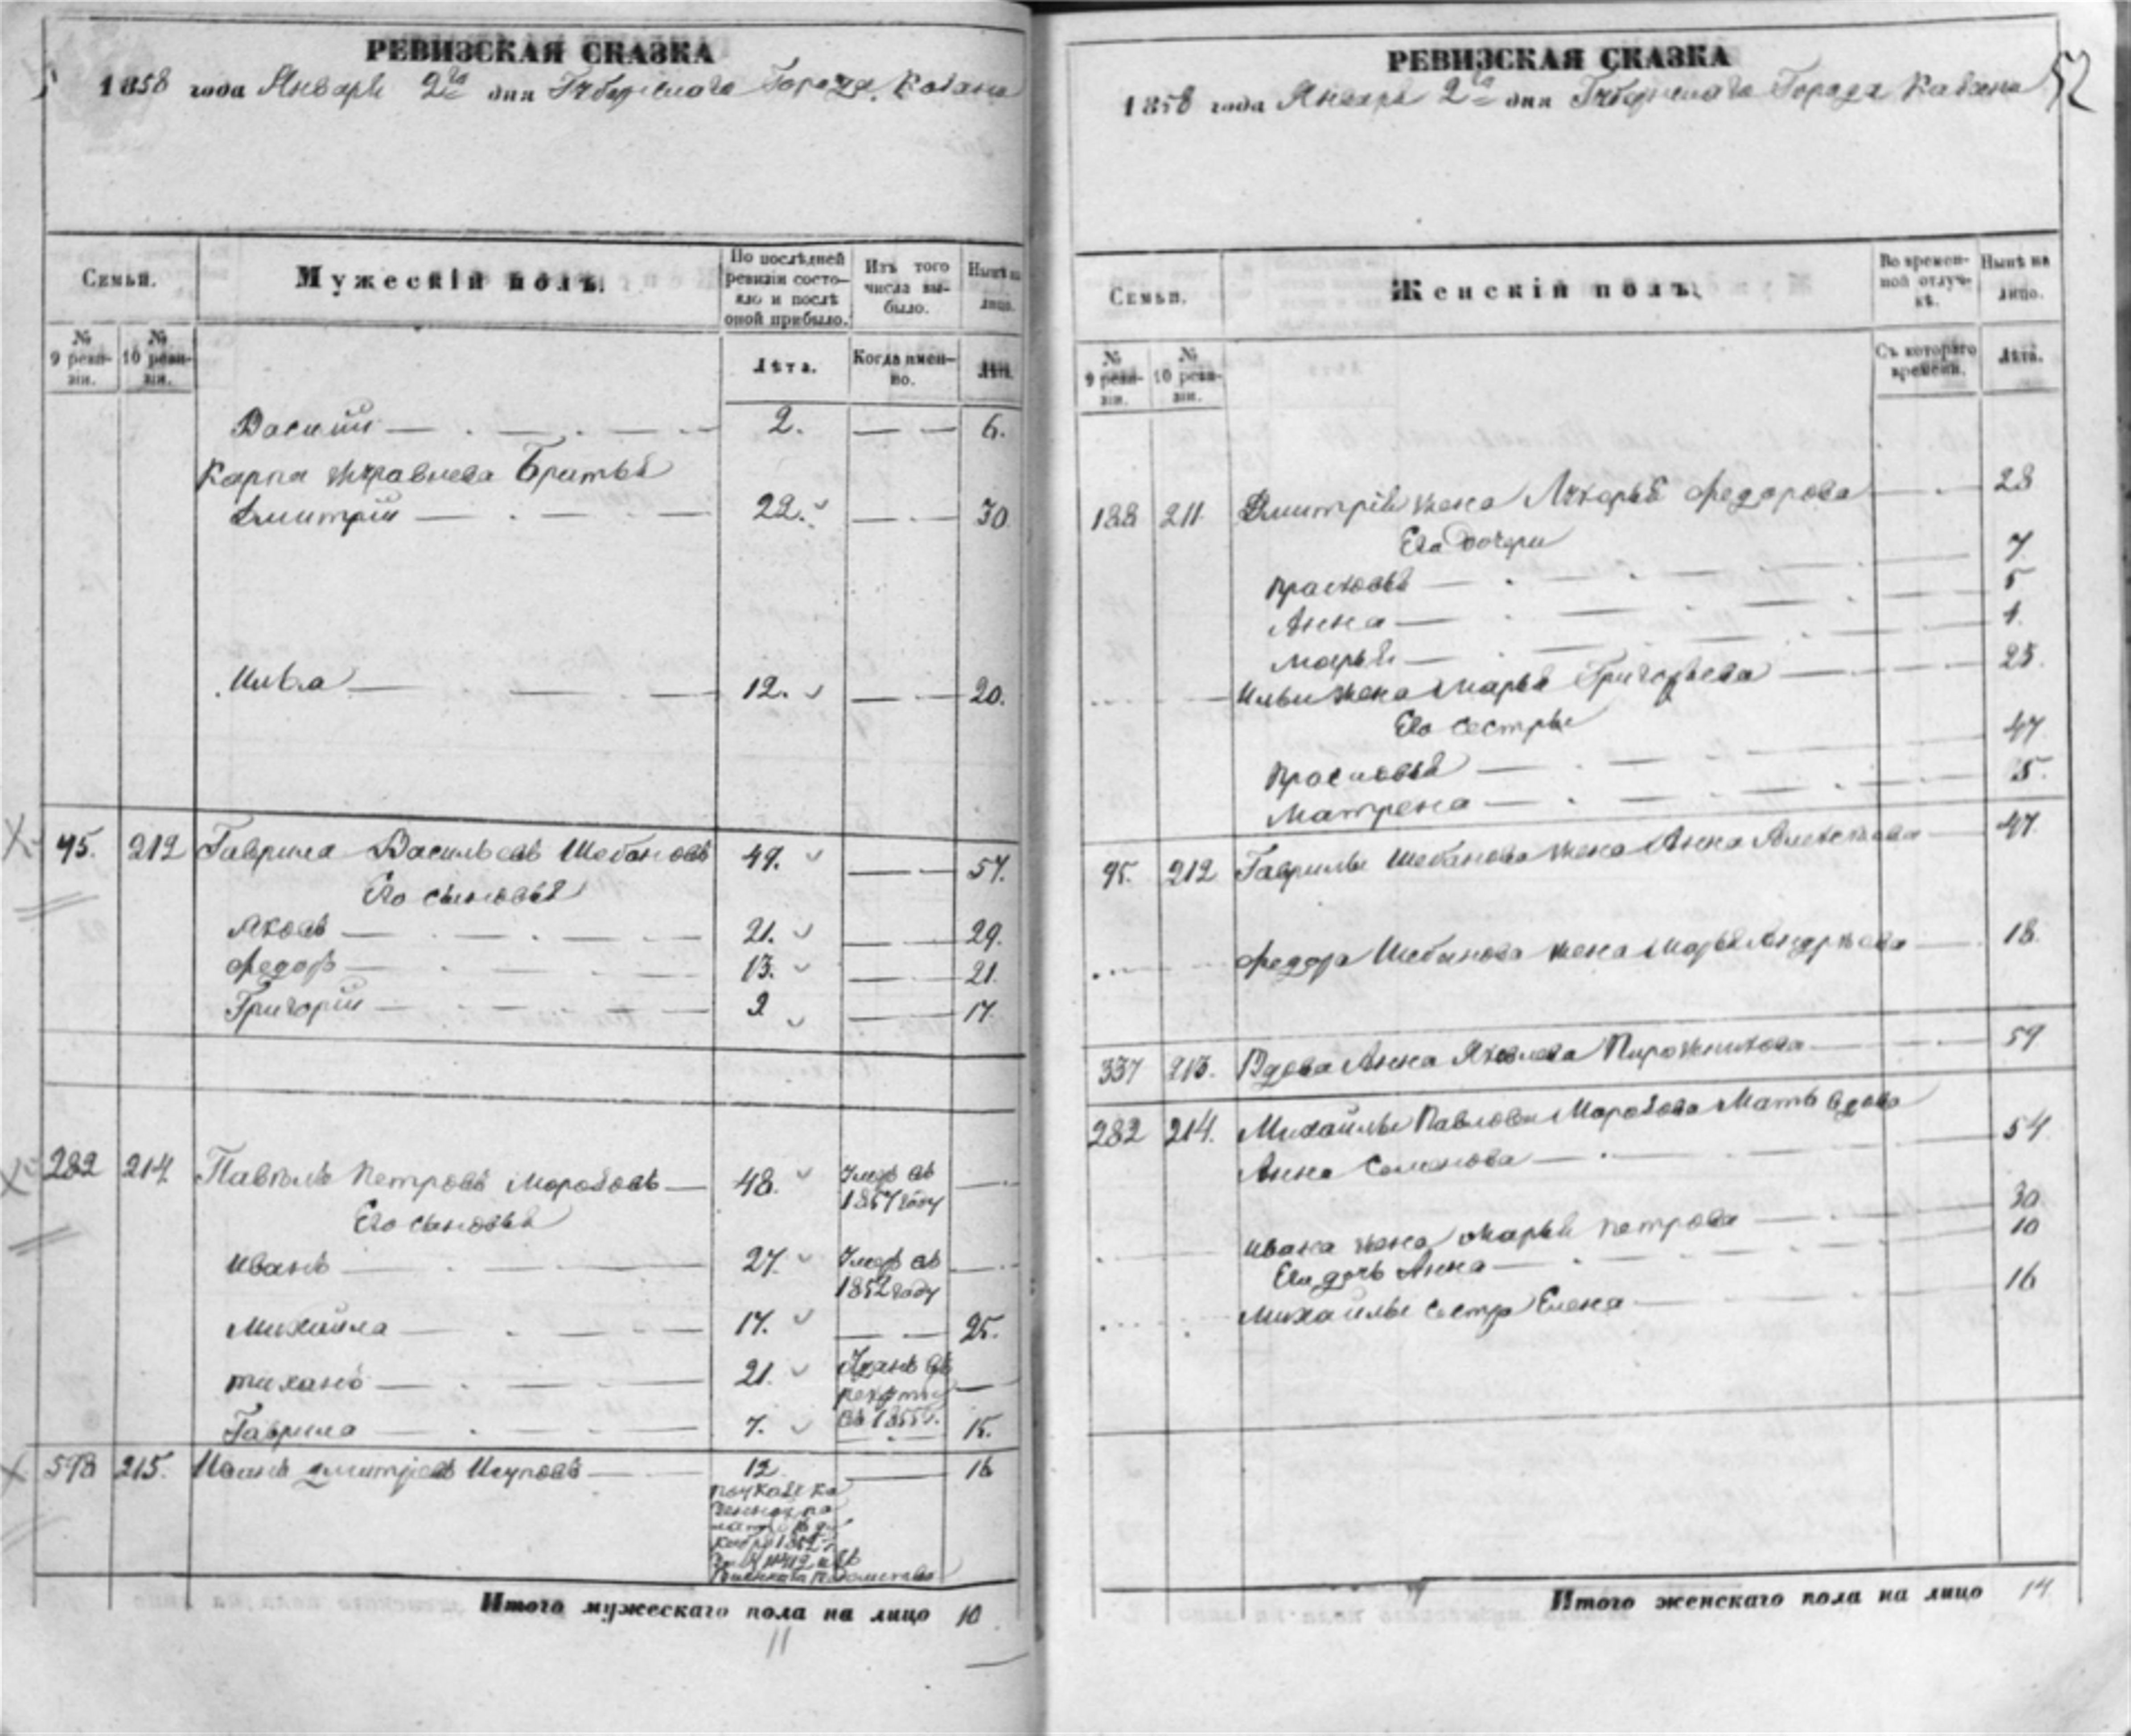 РЕВИЗСКАЯ СКАЗКА
1858 года Января 2го дня Губернскаго Города Казани
Семьи.
Мужескій полъ.
По послѣдней ревизіи состояло и послѣ оной прибыло.
Изъ того числа выбыло.
Нынѣ на лицо.
№ 9 ревизіи.
№ 10 ревизіи.
Лѣта.
Когда именно.
Лѣта.
Василій 2. 6.
Карпа Братья
Дмитрій 22. 30
Илья 12. 20.
95. 212 Гаврила Васильевъ Шебановъ 49. 57.
Его сыновья
Яковъ 21. 29.
Федоръ 13. 21.
Григорій 17
282 214 Павелъ Петровъ Морозовъ 48. Умеръ въ 1857 году
Его сыновья
Иванъ 27. Умеръ въ 1852 году
Михайла 17. 25.
Тиханъ 21. въ рекруты въ 1855
Гаврила 7. 15.
598 215. Иванъ Дмитріевъ 12 16
по указу Ка
Итого мужескаго пола на лицо 10
11
РЕВИЗСКАЯ СКАЗКА
52
1858 года Января 2го дня Губернскаго Города Казани
Семьи.
Женскій полъ.
Во временной отлучкѣ.
Нынѣ на лицо.
№ 9 ревизіи.
№ 10 ревизіи.
Съ котораго времени.
Лѣта.
188 211 Дмитрія жена Лукерья Федорова 28
Его дочери
Прасковья 7
Анна 5
Марья 1.
Ильи жена Марья Григорьева 25.
Его сестры
Прасковья 47
Матрена 5.
95. 212 Гаврилы Шебанова жена Анна Алексѣева 47
Федора Шебанова жена Марья Андрѣева 18.
337 213. Вдова Анна Яковлева Пирожникова 59
282 214. Михайлы Павлова Морозова Мать вдова
Анна Семенова 54
Ивана жена Марья Петрова 30
Его дочь Анна 10
Михайлы сестра Елена 16
Итого женскаго пола на лицо 14